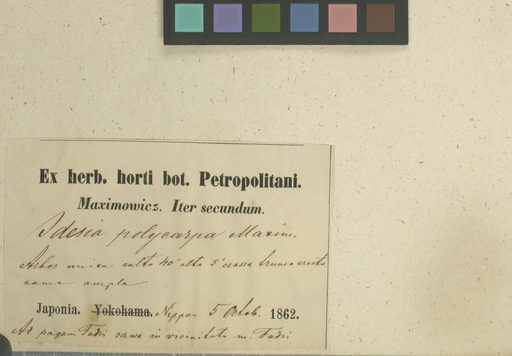 Ex herb. horti bot. Petropolitani.
Maximowicz. Iter secundum.
Idesia polycarpa Maxim.
Arbor unica culta 40' alta 5' crassa trunco erecto
coma ampla
Japonia. Yokohama. Nippon 5 Octob. 1862.
Ad pagum Fudsi sawa in vicinitate m. Fudsi